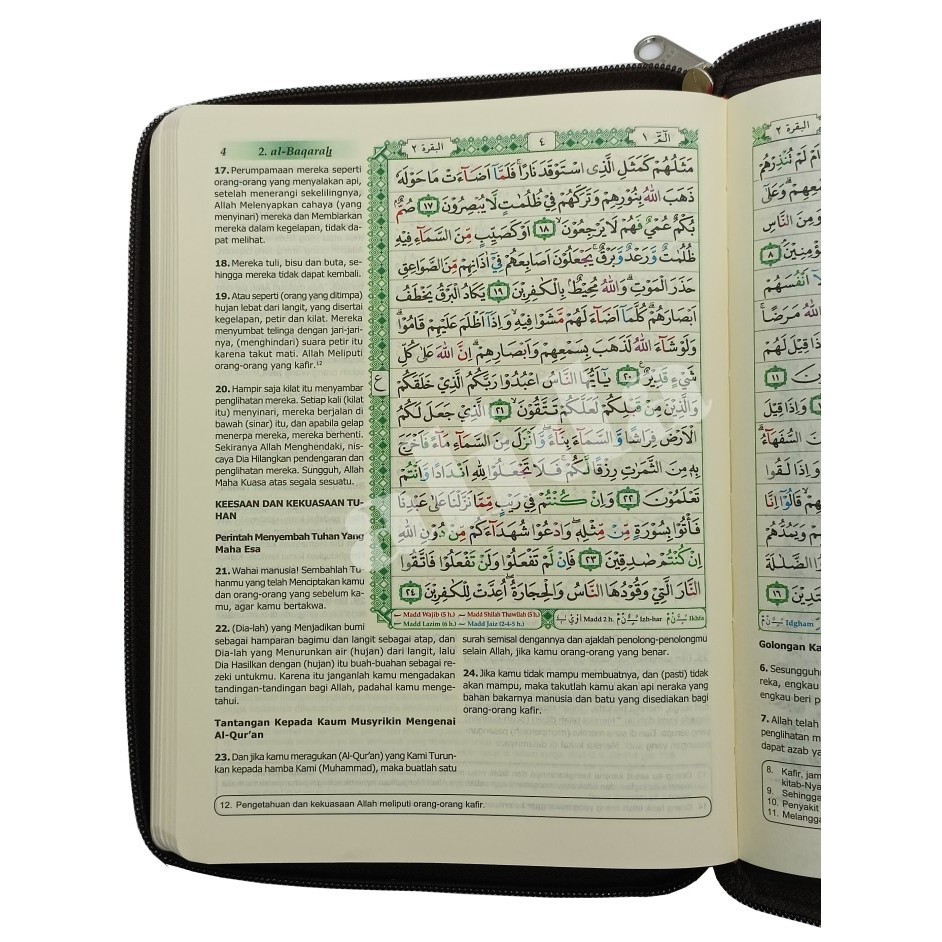 4 2. al-Baqarah
17. Perumpamaan mereka seperti
orang-orang yang menyalakan api,
setelah menerangi sekelilingnya,
Allah Melenyapkan cahaya (yang
menyinari) mereka dan Membiarkan
mereka dalam kegelapan, tidak da-
pat melihat.
18. Mereka tuli, bisu dan buta, se-
hingga mereka tidak dapat kembali.
19. Atau seperti (orang yang ditimpa)
hujan lebat dari langit, yang disertai
kegelapan, petir dan kilat. Mereka
menyumbat telinga dengan jari-jari-
nya, (menghindari) suara petir itu
karena takut mati. Allah Meliputi
orang-orang yang kafir.12
20. Hampir saja kilat itu menyambar
penglihatan mereka. Setiap kali (kilat
itu) menyinari, mereka berjalan di
bawah (sinar) itu, dan apabila gelap
menerpa mereka, mereka berhenti.
Sekiranya Allah Menghendaki, nis-
caya Dia Hilangkan pendengaran dan
penglihatan mereka. Sungguh, Allah
Maha Kuasa atas segala sesuatu.
KEESAAN DAN KEKUASAAN TU-
HAN
Perintah Menyembah Tuhan Yang
Maha Esa
21. Wahai manusia! Sembahlah Tu-
hanmu yang telah Menciptakan kamu
dan orang-orang yang sebelum ka-
mu, agar kamu bertakwa.
22. (Dia-lah) yang Menjadikan bumi
sebagai hamparan bagimu dan langit sebagai atap, dan
Dia-lah yang Menurunkan air (hujan) dari langit, lalu
Dia Hasilkan dengan (hujan) itu buah-buahan sebagai re-
zeki untukmu. Karena itu janganlah kamu mengadakan
tandingan-tandingan bagi Allah, padahal kamu menge-
tahui.
Tantangan Kepada Kaum Musyrikin Mengenai
Al-Qur'an
23. Dan jika kamu meragukan (Al-Qur'an) yang Kami Turun-
kan kepada hamba Kami (Muhammad), maka buatlah satu
surah semisal dengannya dan ajaklah penolong-penolongmu
selain Allah, jika kamu orang-orang yang benar.
24. Jika kamu tidak mampu membuatnya, dan (pasti) tidak
akan mampu, maka takutlah kamu akan api neraka yang
bahan bakarnya manusia dan batu yang disediakan bagi
orang-orang kafir.
12. Pengetahuan dan kekuasaan Allah meliputi orang-orang kafir.
الٓمّٓ ١ ٤ البقرة ٢
مَثَلُهُمْ كَمَثَلِ الَّذِى اسْتَوْقَدَ نَارًاۚ فَلَمَّآ اَضَاۤءَتْ مَا حَوْلَهٗ
ذَهَبَ اللّٰهُ بِنُوْرِهِمْ وَتَرَكَهُمْ فِيْ ظُلُمٰتٍ لَّا يُبْصِرُوْنَ ١٧ صُمٌّۢ
بُكْمٌ عُمْيٌ فَهُمْ لَا يَرْجِعُوْنَۙ ١٨ اَوْ كَصَيِّبٍ مِّنَ السَّمَاۤءِ فِيْهِ
ظُلُمٰتٌ وَّرَعْدٌ وَّبَرْقٌۚ يَجْعَلُوْنَ اَصَابِعَهُمْ فِيْٓ اٰذَانِهِمْ مِّنَ الصَّوَاعِقِ
حَذَرَ الْمَوْتِۗ وَاللّٰهُ مُحِيْطٌۢ بِالْكٰفِرِيْنَ ١٩ يَكَادُ الْبَرْقُ يَخْطَفُ
اَبْصَارَهُمْۗ كُلَّمَآ اَضَاۤءَ لَهُمْ مَّشَوْا فِيْهِۙ وَاِذَآ اَظْلَمَ عَلَيْهِمْ قَامُوْاۗ
وَلَوْ شَاۤءَ اللّٰهُ لَذَهَبَ بِسَمْعِهِمْ وَاَبْصَارِهِمْۗ اِنَّ اللّٰهَ عَلٰى كُلِّ
شَيْءٍ قَدِيْرٌ ٢٠ يٰٓاَيُّهَا النَّاسُ اعْبُدُوْا رَبَّكُمُ الَّذِيْ خَلَقَكُمْ
وَالَّذِيْنَ مِنْ قَبْلِكُمْ لَعَلَّكُمْ تَتَّقُوْنَۙ ٢١ الَّذِيْ جَعَلَ لَكُمُ
الْاَرْضَ فِرَاشًا وَّالسَّمَاۤءَ بِنَاۤءًۖ وَّاَنْزَلَ مِنَ السَّمَاۤءِ مَاۤءً فَاَخْرَجَ
بِهٖ مِنَ الثَّمَرٰتِ رِزْقًا لَّكُمْۚ فَلَا تَجْعَلُوْا لِلّٰهِ اَنْدَادًا وَّاَنْتُمْ
تَعْلَمُوْنَ ٢٢ وَاِنْ كُنْتُمْ فِيْ رَيْبٍ مِّمَّا نَزَّلْنَا عَلٰى عَبْدِنَا
فَأْتُوْا بِسُوْرَةٍ مِّنْ مِّثْلِهٖۖ وَادْعُوْا شُهَدَاۤءَكُمْ مِّنْ دُوْنِ اللّٰهِ
اِنْ كُنْتُمْ صٰدِقِيْنَ ٢٣ فَاِنْ لَّمْ تَفْعَلُوْا وَلَنْ تَفْعَلُوْا فَاتَّقُوا
النَّارَ الَّتِيْ وَقُوْدُهَا النَّاسُ وَالْحِجَارَةُۖ اُعِدَّتْ لِلْكٰفِرِيْنَ ٢٤
ع
Madd Wajib (5 h.) Madd Shilah Thawilah (5 h.)
Madd Lazim (6 h.) Madd Jaiz (2-4-5 h.)
Madd 2 h. Izh-har Ikhfa
البقرة ٢
Idgham
Golongan Ka
6. Sesungguh
reka, engkau
engkau beri p
7. Allah telah
penglihatan m
dapat azab ya
8. Kafir, jam
kitab-Nya
9. Sehingga
10. Penyakit
11. Melangga